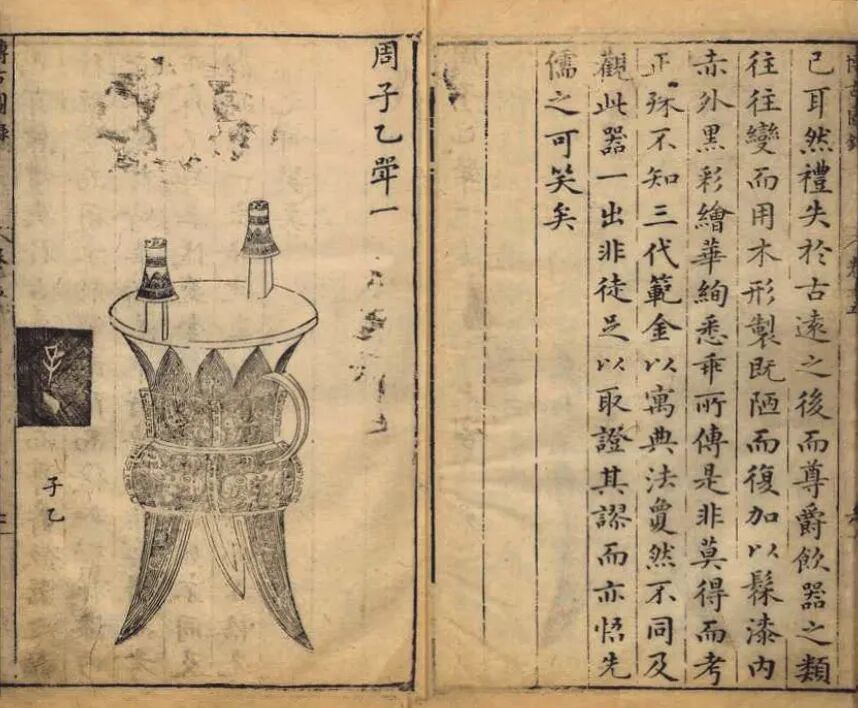 博古圖錄
已耳然禮失於古遠之後而尊爵飲器之類
往往變而用木形製既陋而復加以髹漆內
赤外黑彩繪華絢悉乖所傳是非莫得而考
正殊不知三代範金以寓典法敻然不同及
觀此器一出非徒足以取證其謬而亦悟先
儒之可笑矣
周子乙斝一
子乙
博古圖錄